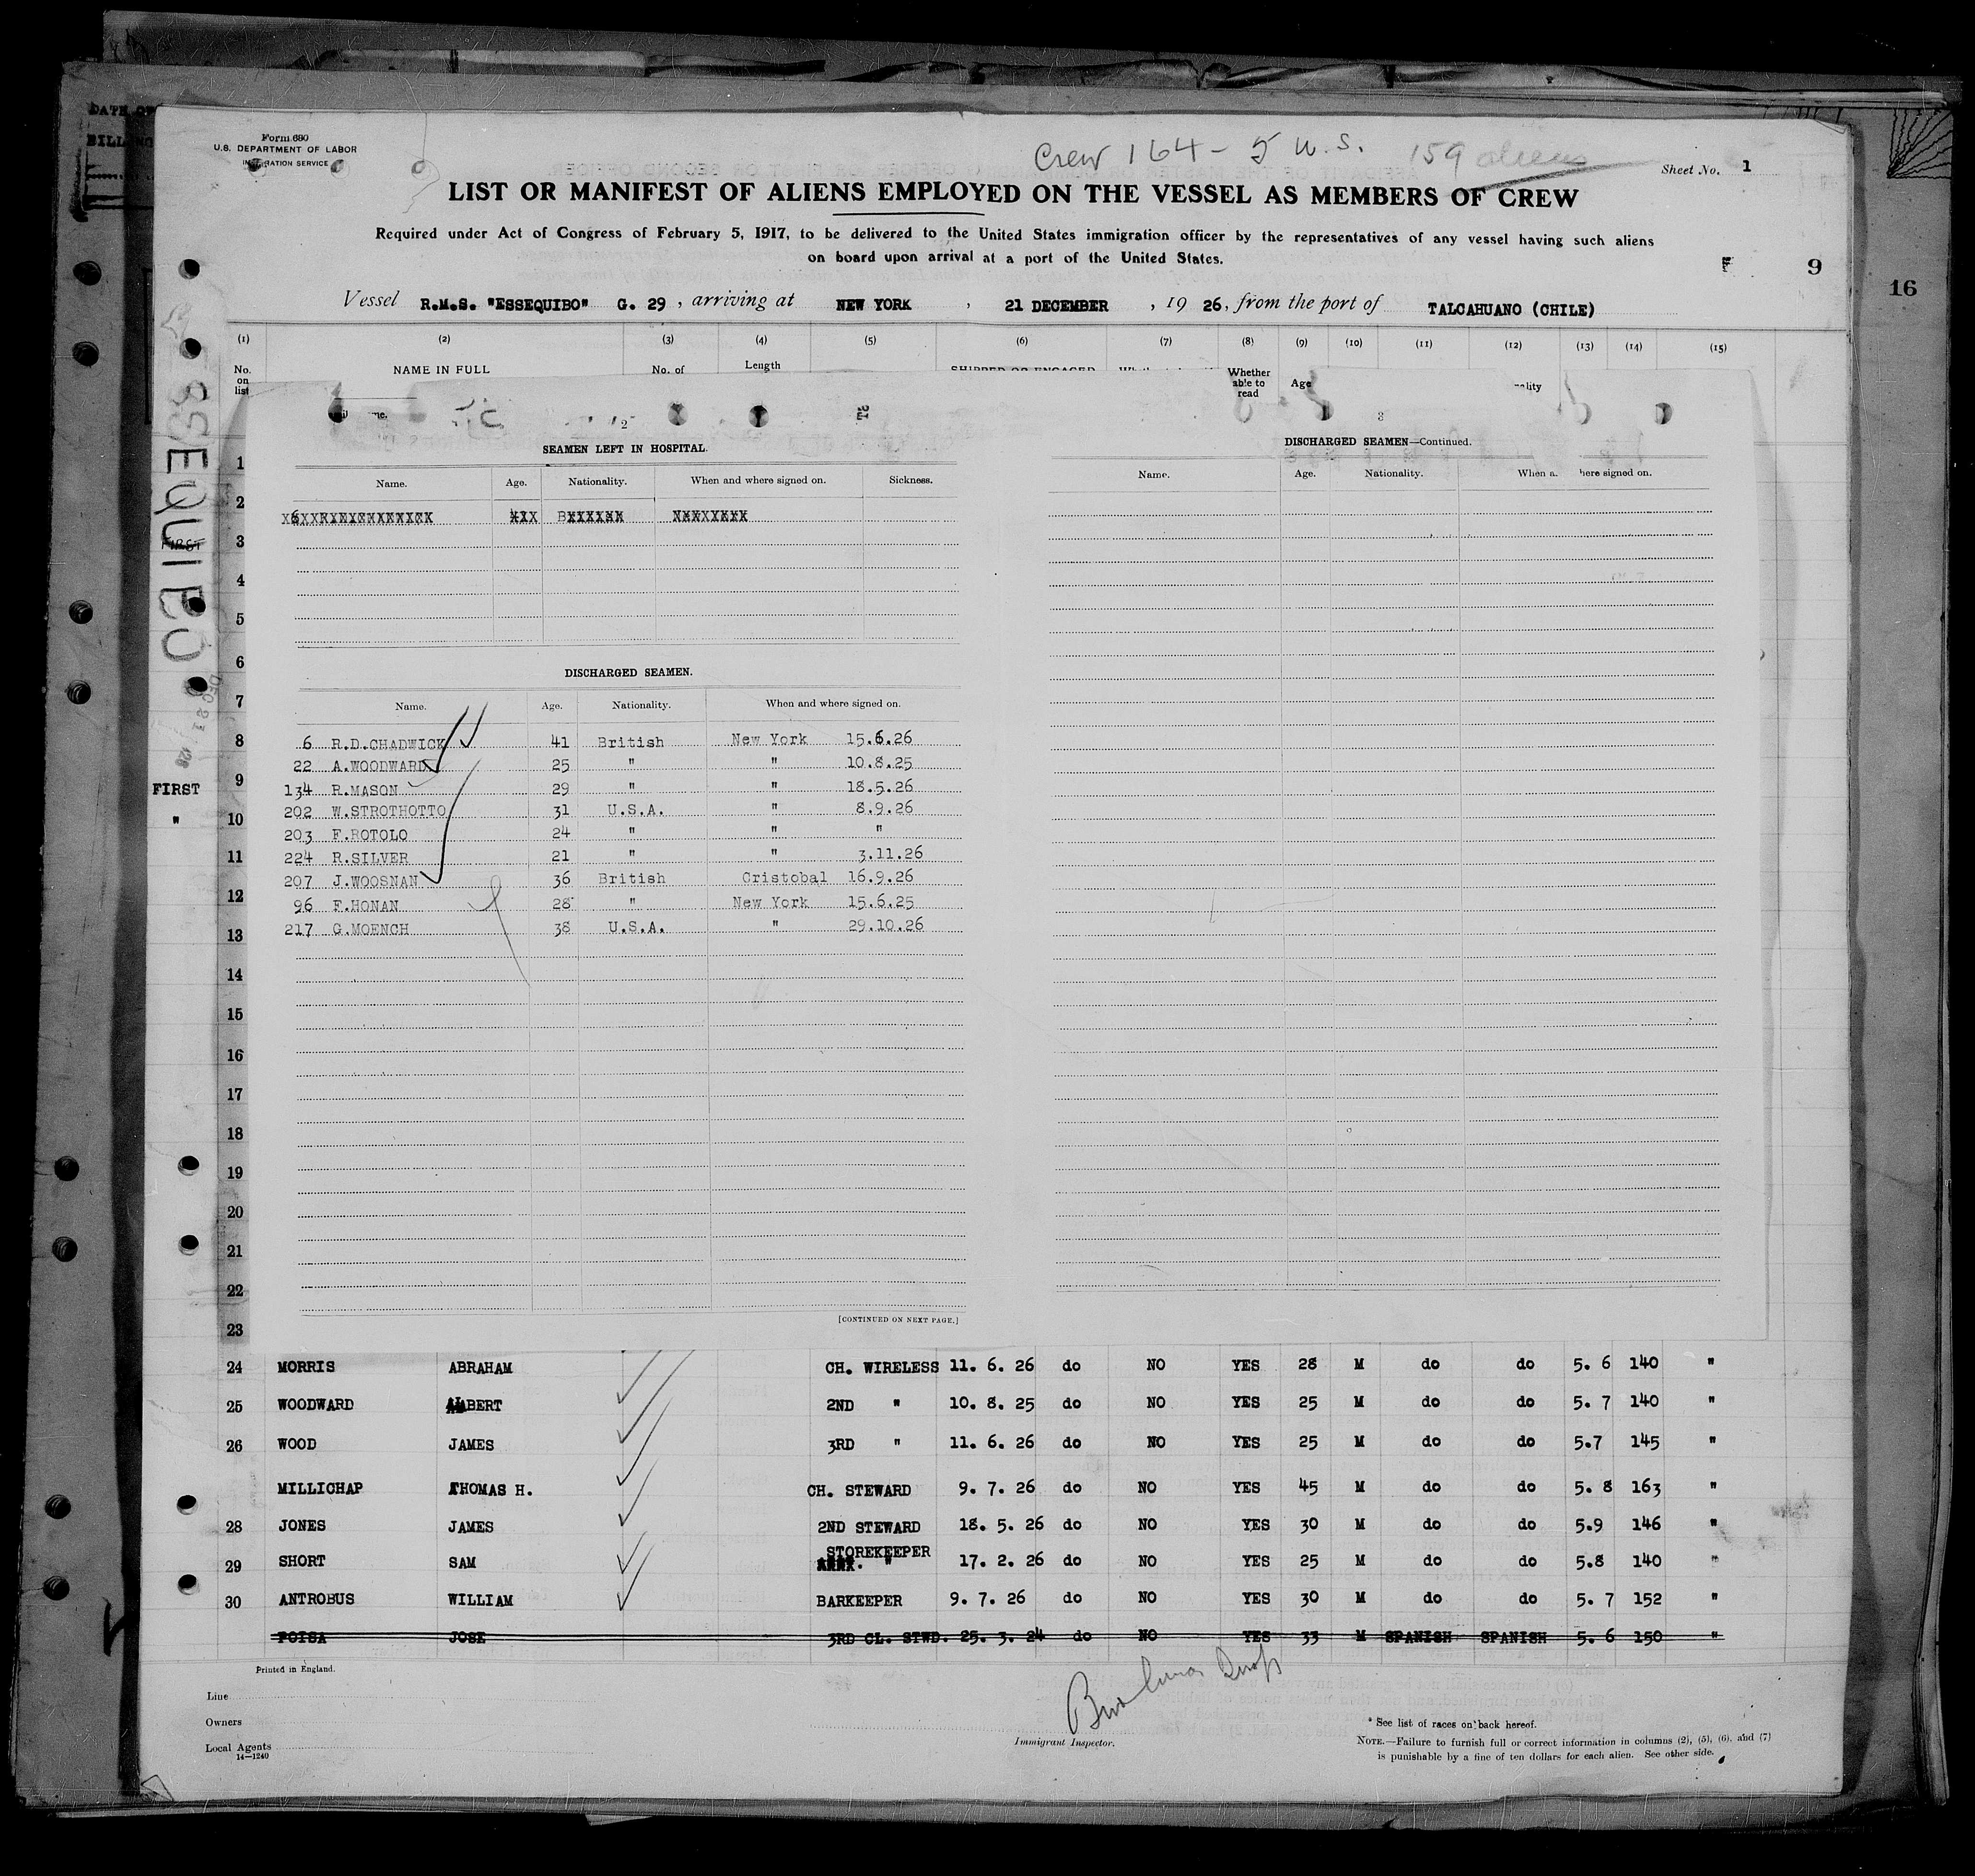 DATE OF
Form 680
U.S. DEPARTMENT OF LABOR
IMMIGRATION SERVICE
Crew 164 - 5 U.S. 159 aliens
Sheet No. 1
LIST OR MANIFEST OF ALIENS EMPLOYED ON THE VESSEL AS MEMBERS OF CREW
Required under Act of Congress of February 5, 1917, to be delivered to the United States immigration officer by the representatives of any vessel having such aliens
on board upon arrival at a port of the United States.
9
16
Vessel R.M.S. "ESSEQUIBO" G. 29 , arriving at NEW YORK , 21 DECEMBER , 19 26, from the port of TALCAHUANO (CHILE)
(1) (2) (3) (4) (5) (6) (7) (8) (9) (10) (11) (12) (13) (14) (15)
No. on list NAME IN FULL No. of Length SHIPPED OR ENGAGED Whether able to read Age
ESSEQUIBO
FIRST
FIRST
"
2
SEAMEN LEFT IN HOSPITAL.
Name. Age. Nationality. When and where signed on. Sickness.
DISCHARGED SEAMEN.
Name. Age. Nationality. When and where signed on.
6 R.D.CHADWICK 41 British New York 15.6.26
22 A.WOODWARD 25 " " 10.8.25
134 R.MASON 29 " " 18.5.26
202 W.STROTHOTTO 31 U.S.A. " 8.9.26
203 F.ROTOLO 24 " " "
224 R.SILVER 21 " " 3.11.26
207 J.WOOSNAN 36 British Cristobal 16.9.26
96 F.HONAN 28 " New York 15.6.25
217 G.MOENCH 38 U.S.A. " 29.10.26
[CONTINUED ON NEXT PAGE.]
3
DISCHARGED SEAMEN—Continued.
Name. Age. Nationality. When a. here signed on.
1
2
3
4
5
6
7
8
9
10
11
12
13
14
15
16
17
18
19
20
21
22
23
24 MORRIS ABRAHAM CH. WIRELESS 11. 6. 26 do NO YES 28 M do do 5. 6 140 "
25 WOODWARD ALBERT 2ND " 10. 8. 25 do NO YES 25 M do do 5. 7 140 "
26 WOOD JAMES 3RD " 11. 6. 26 do NO YES 25 M do do 5.7 145 "
MILLICHAP THOMAS H. CH. STEWARD 9. 7. 26 do NO YES 45 M do do 5. 8 163 "
28 JONES JAMES 2ND STEWARD 18. 5. 26 do NO YES 30 M do do 5.9 146 "
29 SHORT SAM STOREKEEPER " 17. 2. 26 do NO YES 25 M do do 5.8 140 "
30 ANTROBUS WILLIAM BARKEEPER 9. 7. 26 do NO YES 30 M do do 5. 7 152 "
POISA JOSE 3RD CL. STWD. 25. 3. 24 do NO YES 33 M SPANISH SPANISH 5. 6 150 "
Printed in England.
Line
Owners
Local Agents
14—1240
Immigrant Inspector.
* See list of races on back hereof.
NOTE.—Failure to furnish full or correct information in columns (2), (5), (6), and (7)
is punishable by a fine of ten dollars for each alien. See other side.